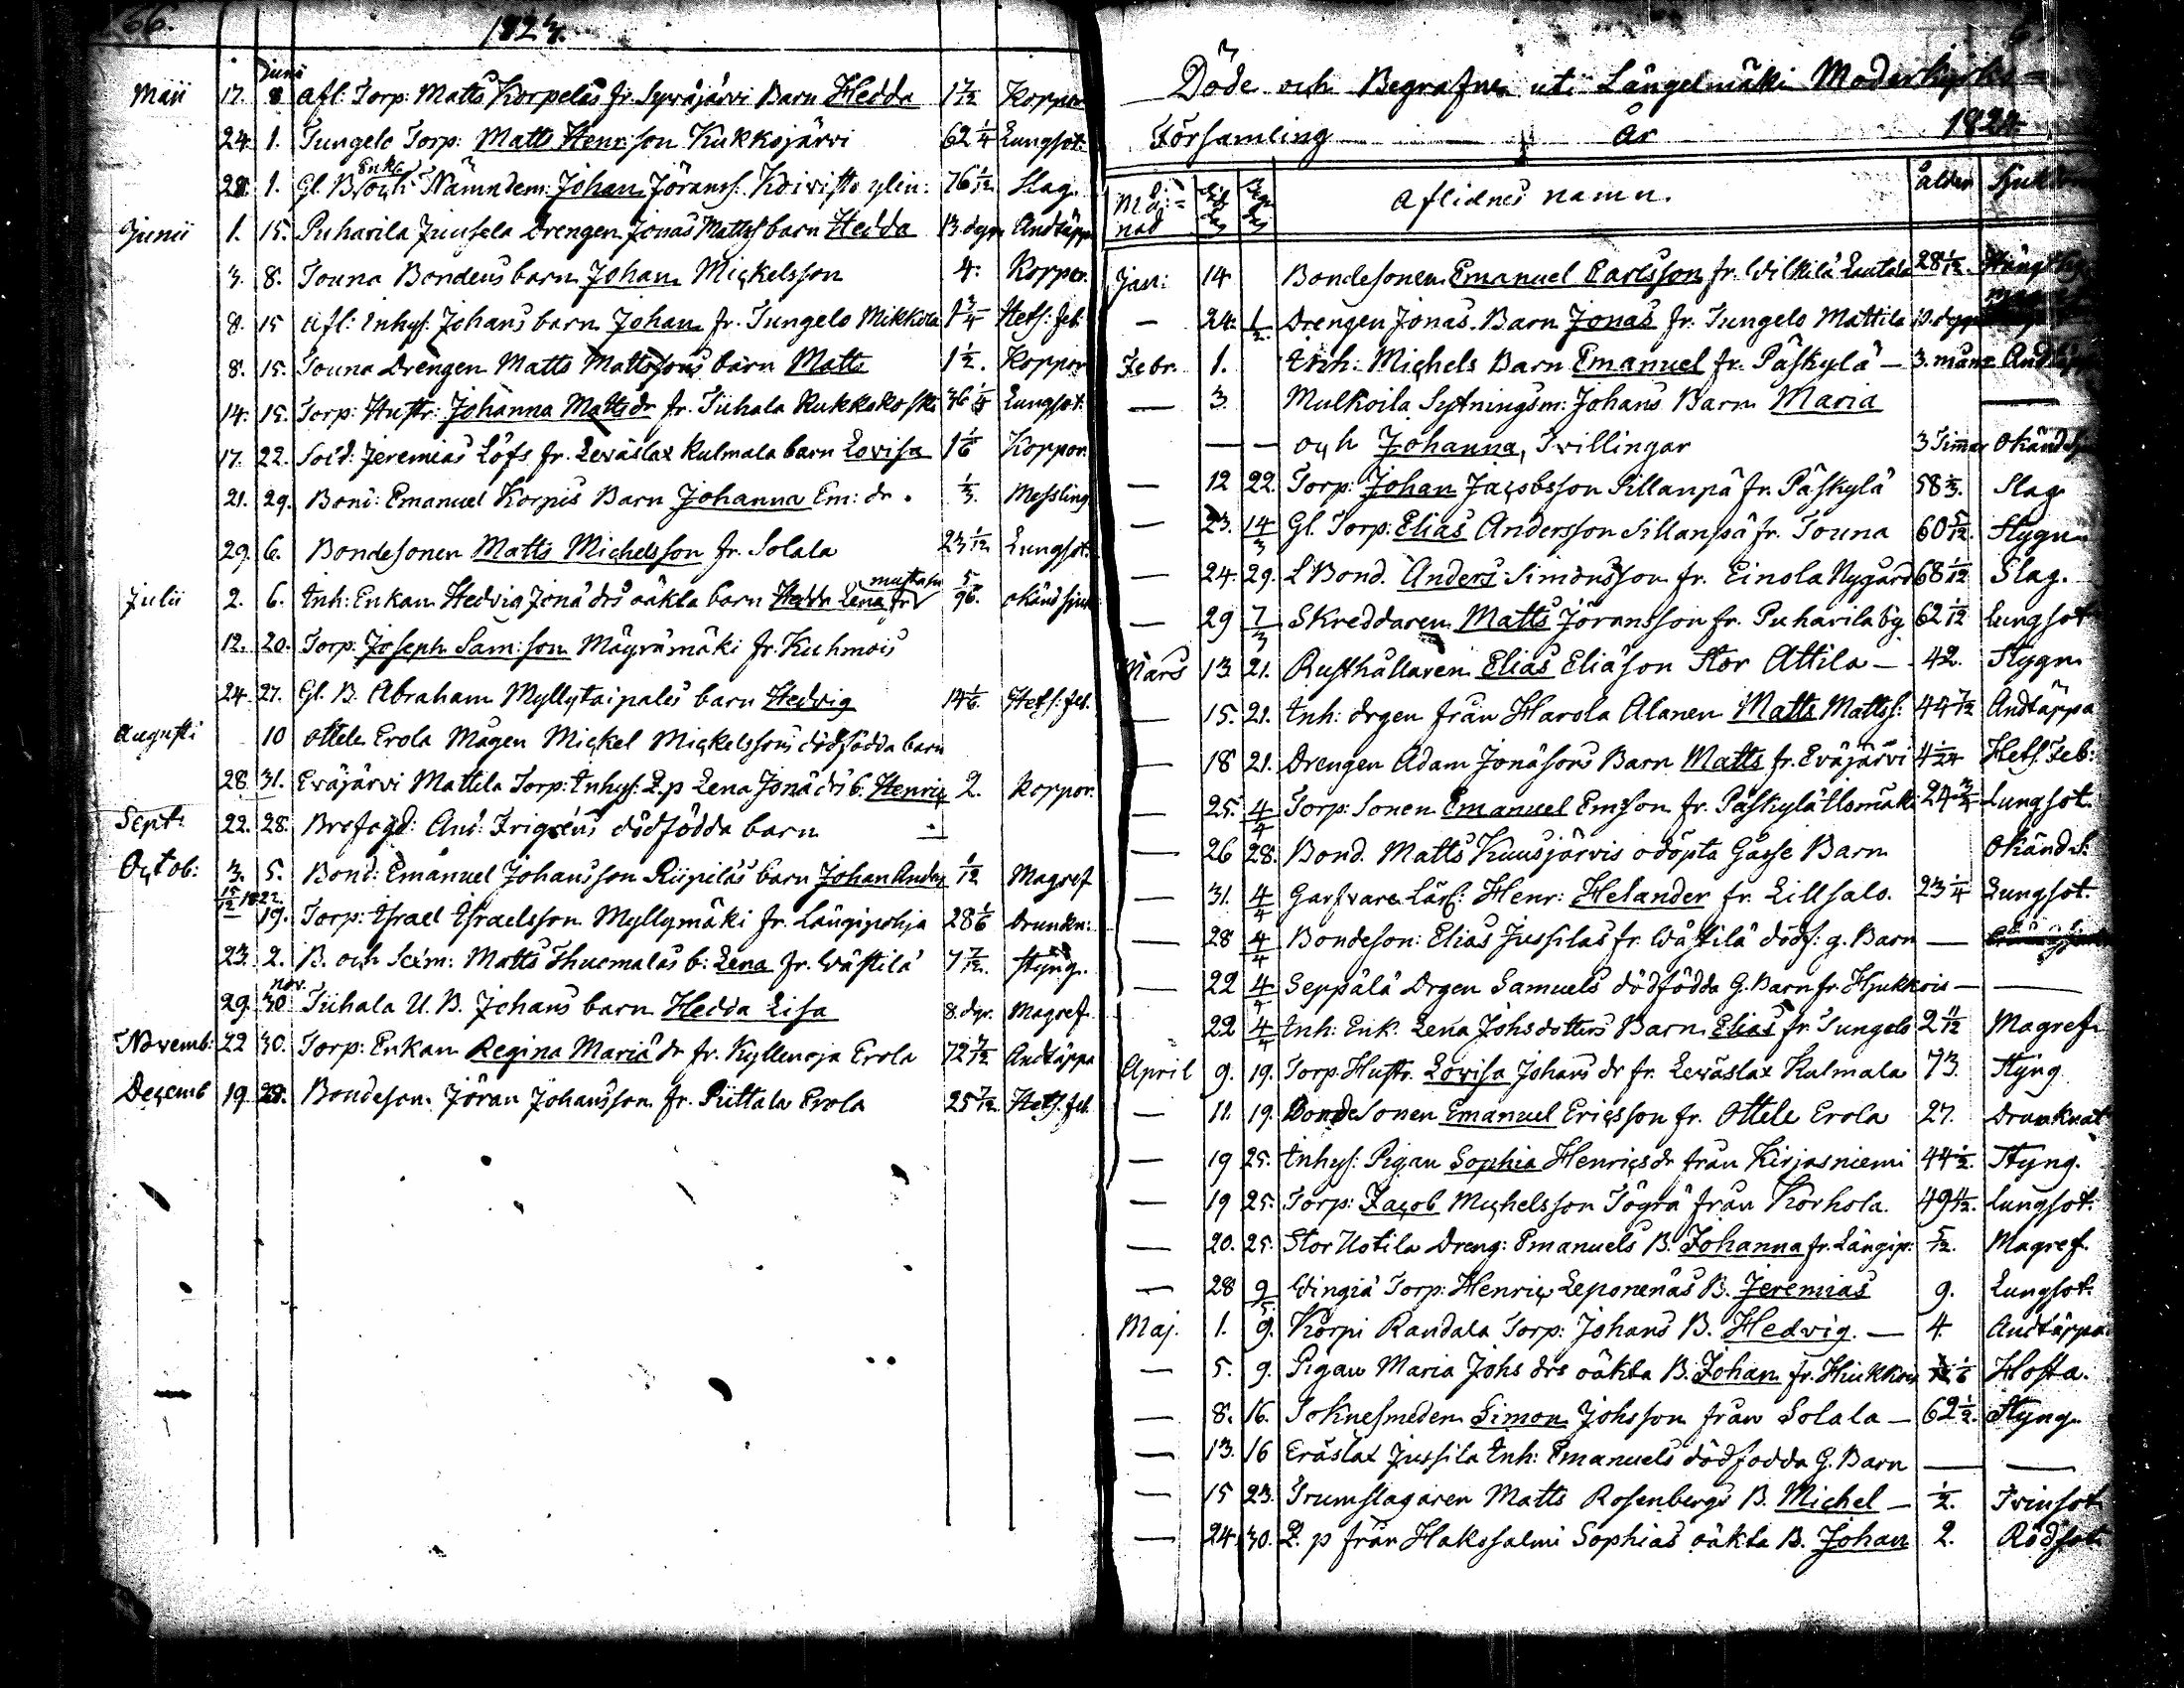 66.
1823.
Juni
Maii 17. 8 Afl: Torp: Matts Korpelas fr. Eväjärvi Barn Hedda 1 7/12 Koppor
24. 1. Tungelo Torp: Matts Henr:son Kukkojärvi 62 1/4 Lungsot.
Enkl.
28. 1. Gl. B. och Nämndem: Johan Jöranss. Koivisto ylin: 76 1/12 Slag.
Junii 1. 15. Puharila Juusela Drengen Jonas Mattss barn Hedda 13 dygn Andtäppa
3. 8. Touna Bondens barn Johan Mickelsson 4. Koppor.
8. 15 Afl: Inhys: Johans barn Johan fr. Tungelo Mikkola 1 3/4 Hets: feb.
8. 15. Touna Drengen Matts Mattssons barn Matts 1 1/2. Koppor
14. 15. Torp: Hustr: Johanna Mattsdr fr. Tiihala Kukkokoski 36 1/4 Lungsot.
17. 22. Sold: Jeremias Löfs fr. Leväslax Kulmala barn Lovisa 1 1/6 Koppor.
21. 29. Bond: Emanuel Korpis Barn Johanna Em: dr. 1/3. Messling
29. 6. Bondesonen Matts Michelsson fr. Solala 23 1/12 Lungsot.
Julii 2. 6. Inh: Enkan Hedvig Jonædrs oäkta barn Hedda Lena fr. 5/96. okänd sjuk
12. 20. Torp: Joseph Sam:son Mäyrämäki fr. Kuhmois
24. 27. Gl. B. Abraham Myllytaipales barn Hedvig 14 1/6. Hets: feb.
Augusti 10 Ottele Erola Mågen Mickel Mickelssons dödfödda barn
28. 31. Eväjärvi Mattila Torp: Inhys: Q.p Lena Jonædrs b. Henric 2. Koppor.
Sept: 22. 28. Brofogd: And: Frigrens dödfödda barn
Octob: 3. 5. Bond: Emanuel Johansson Riipiläs barn Johan Anders 1/12 Magref
15/12 1822. 19. Torp: Israel Israelsson Myllymäki fr. Längipohja 28 1/6 Drunkn:
23. 2. B. och Sexm: Matts Thuomalas b: Lena fr. Wästilä 7 7/12. Styng.
nov.
29. 30 Tiihala U. B. Johans barn Hedda Lisa 8. dgr. Magref.
Novemb: 22 30. Torp: Enkan Regina Mariædr fr. Kyllenoja Erola 72 7/12 Andtäppa
Decemb 19 28. Bondeson Jöran Johansson fr. Piittala Erola 25 7/12. Hets: feb.
Döde och Begrafne uti Längelmäki Moderkyrko=
Församling År 1824
Må=nad Aflidnes namn. Ålder Sjukdom
Jan: 14 Bondesonen Emanuel Carlsson fr. Wilkilä Lautala 28 1/12.
— 24. 1/2 Drengen Jonas Barn Jonas fr. Tungelo Mattila 10. dygn
Febr. 1. Inh: Michels Barn Emanuel fr. Päskylä — 3. mån: Andtäppa
— 3. Mulkoila Sytningsm: Johans Barn Maria —
— — och Johanna, Tvillingar 3 Timmar Okänd sj.
— 12 22. Torp: Johan Jacobsson Sillanpä fr. Päskylä 58 1/3. Slag
— 23. 14/3 Gl. Torp: Elias Andersson Sillanpä fr. Touna 60 5/12. Stygn
— 24. 29. L Bond. Anders Simonsson fr. Einola Nygård 68 1/12 Slag.
— 29 7/3 Skreddaren Matts Jöransson fr. Puharila by 62 1/12 Lungsot
Mars 13. 21. Rusthållaren Elias Eliæson Stor Attila — 42. Stygn.
— 15. 21. Inh: drgen från Harola Alanen Matts Mattss: 44 7/12 Andtäppa
— 18 21. Drengen Adam Jonæsons Barn Matts fr. Eväjärvi 4 1/24 Hets. Feb:
— 25. 4/4 Torp: Sonen Emanuel Em:son fr. Päskylä Ulomäki 24 3/4 Lungsot.
— 26 28. Bond. Matts Kuusjärvis odöpta Gosse Barn Okänd S.
— 31. 4/4 Garfvare Lärl: Henr: Helander fr. Lillsalo. 23 1/4 Lungsot.
— 28 4/4 Bondeson: Elias Jussilas fr. Wästilä dödf: g. Barn —
— 22 4/4 Seppälä Drgen Samuels dödfödda G. Barn fr. Hjukkois — —
22 4/4 Inh: Enk: Lena Johsdotters Barn Elias fr. Tungelo 2 11/12 Magref.
April 9. 19. Torp. Hustr. Lovisa Johans dr fr. Leväslax Kulmala 73. Styng
— 11. 19. Bondesonen Emanuel Ericsson fr. Ottele Erola 27. Drunknat
— 19 25. Inhys: Pigan Sophia Henricsdr från Kirjasniemi 44 1/2. Styng.
— 19 25. Torp: Jacob Michelsson Tögrä från Korhola. 49 1/2. Lungsot.
— 20. 25. Stor Uotila Dreng: Emanuels B. Johanna fr. Längip: 5/12. Magref.
— 28 9/5. Wingiä Torp: Henric Leponenäs B. Jeremias 9. Lungsot.
Maj. 1. 9. Korpi Randala Torp: Johans B. Hedvig. — 4. Andtäppa
— 5. 9. Pigan Maria Johs drs oäkta B. Johan fr. Hiukkois 1/6 Hosta.
— 8. 16. Soknesmeden Simon Johsson från Solala — 62 1/2. Styng.
— 13. 16 Eräslax Jussila Inh: Emanuels dödfodda G. Barn — —
— 15 23. Trumslagaren Matts Rosenbergs B. Michel — 1/2. Tvinsot
— 24. 30. Q. p från Hakosalmi Sophias oäkta B. Johan 2. Rödsot